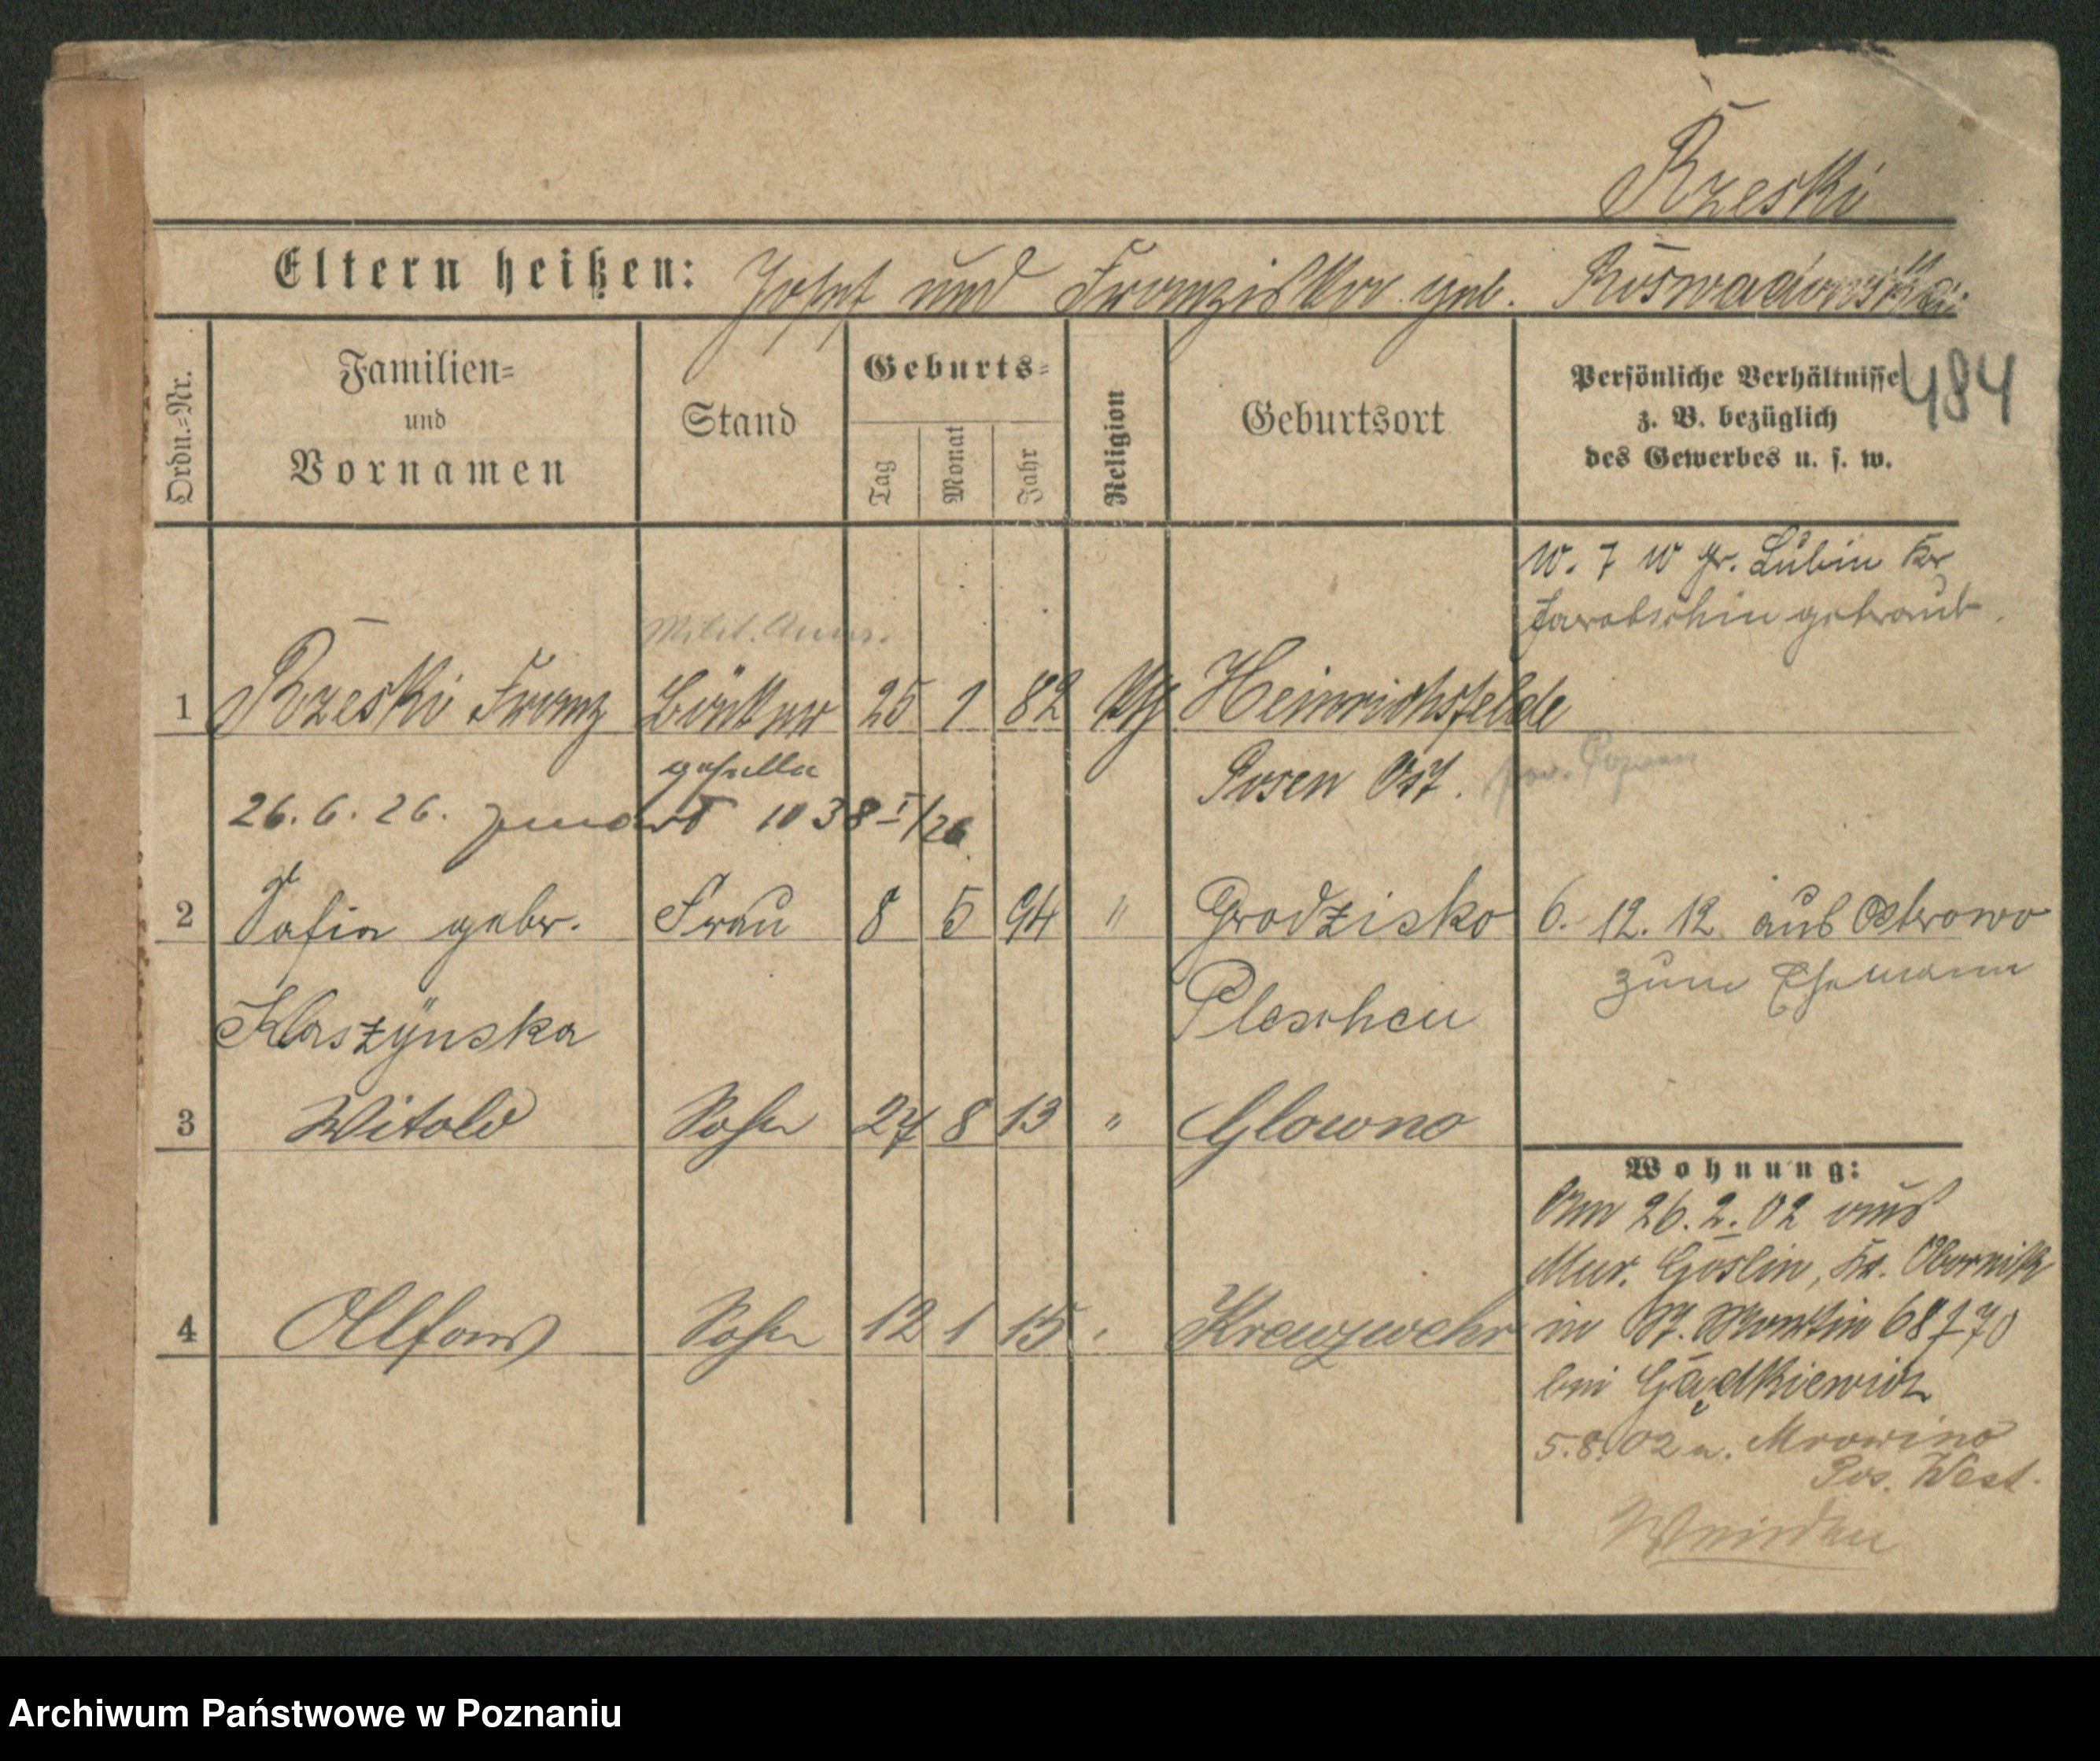 Rzeski
Eltern heißen: Josef und Franziska geb. Roswadowska
Ordn.=Nr.
Familien=
und
Vornamen
Stand
Geburts=
Tag
Monat
Jahr
Religion
Geburtsort
Persönliche Verhältnisse
z. B. bezüglich
des Gewerbes u. s. w.
484
W. 7 W Gr. Lubin Kr
Jarotschin getraut.
Milit.
1 Rzeski Franz Böttcher 25 1 82 Heinrichsfelde
geselle Posen Ost. pow. Poznań
26. 6. 26. 1038 I/26
2 Sofia gebr. Frau 8 5 94 " Grodzisko 6. 12. 12 aus Ostrowo
Klaszÿnska Pleschen zum Ehemann
3 Witold Sohn 27 8 13 " Glowno
Wohnung:
Am 26. 2. 02 aus
Mur. Goslin, Kr. Obornik
4 Alfons Sohn 12 1 15 " Kreuzwehr in St. Martin 68/70
bei Gądkiewicz
5. 8. 02 n. Mrowino
Pos. West.
Archiwum Państwowe w Poznaniu